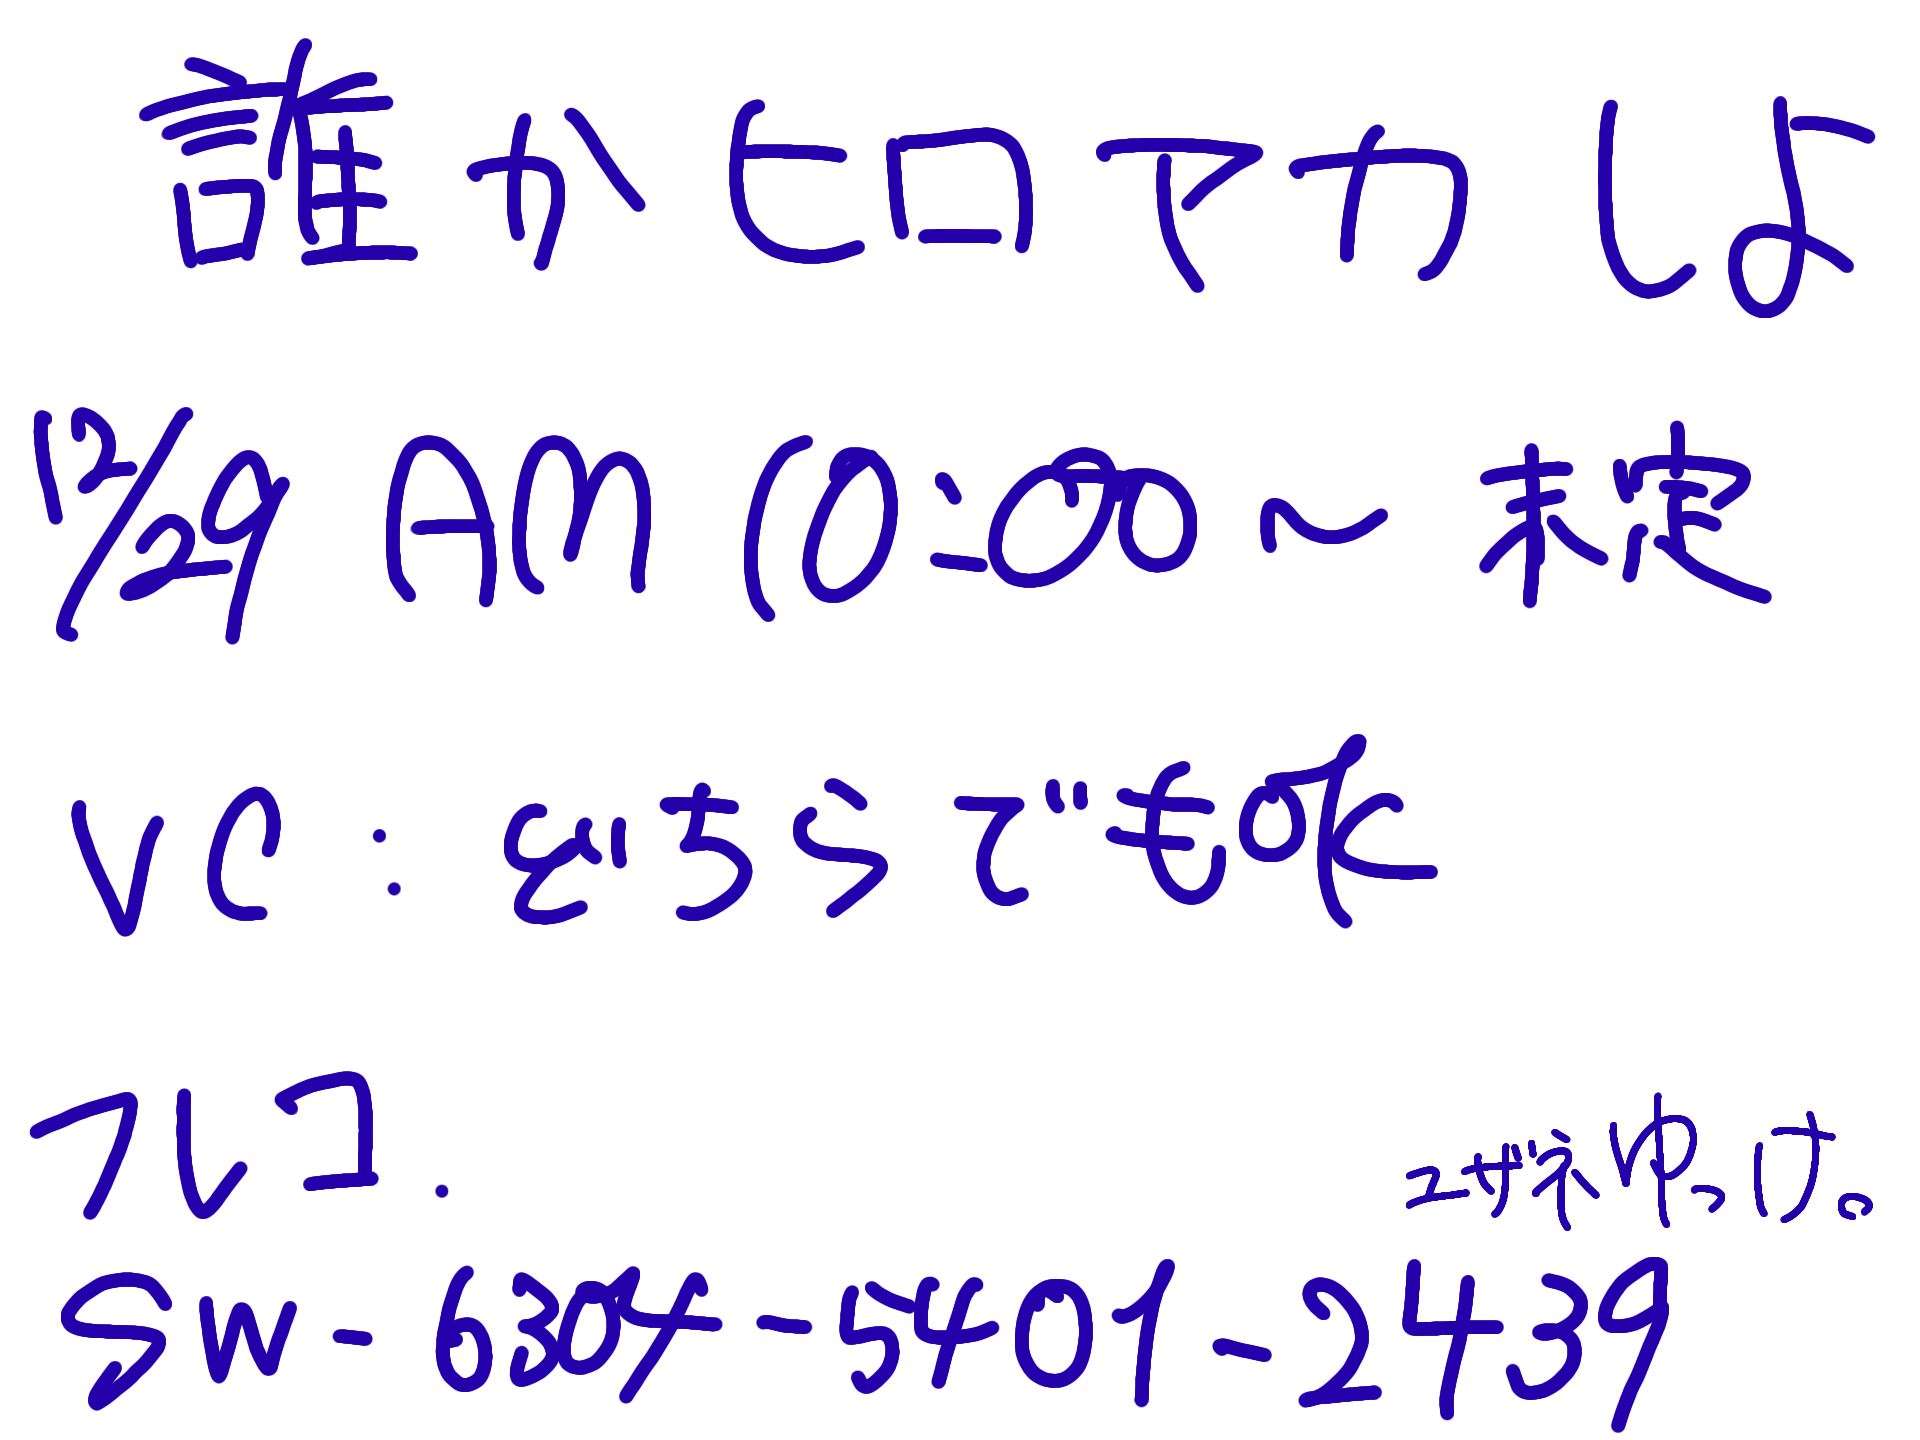 誰かヒロアカしよ
12/29 AM 10:00～未定
VC:どちらでもOK
フレコ.
ユザネゆっけ。
SW-6304-5401-2439